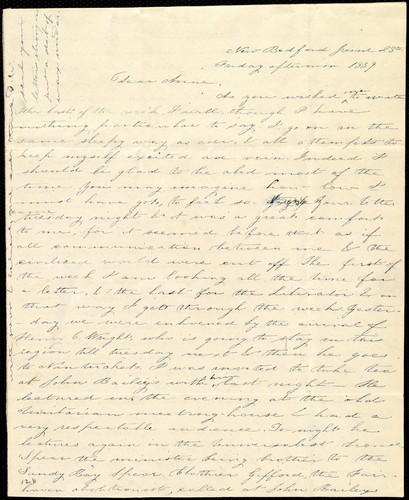 New Bedford June 25th
Tuesday afternoon 1839
Dear Anne,
As you wished me to write
the last of the week I write, though I have
nothing particular to say, I go on in the
same sleepy way as ever, & all attempts to
keep myself excited are vain. Indeed I
should be glad to be abed most of the
time you may imagine how low I
must have got, to feel so. Your letter
came
tuesday night & it was a great comfort
to me, for it seemed before that as if
all communication between me & the
civilized world were cut off. The first of
the week I am looking all the time for
a letter, & the last for the Liberator & in
that way I get through the week. Yester-
-day we were enlivened by the arrival of
Henry C Wright, who is going to stay in this
region till tuesday next & then he goes
to Nantucket. I was invited to take tea
at John Bailey's with him last night - He
lectured in the evening at the old
Unitarian meeting house & had a
very respectable audience. To night he
lectures again in the Universalist house
Spear the minister being brother to the
Sandy Bay Spear. Clother Gifford, the Fair-
haven abolitionist, called at John Bailey's